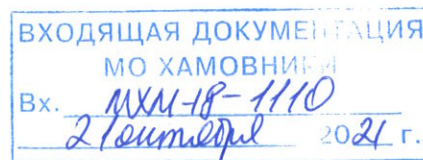 ВХОДЯЩАЯ ДОКУМЕНТАЦИЯ
МО ХАМОВНИКИ
Вх. МХМ-18-1110
21 октября 2021 г.